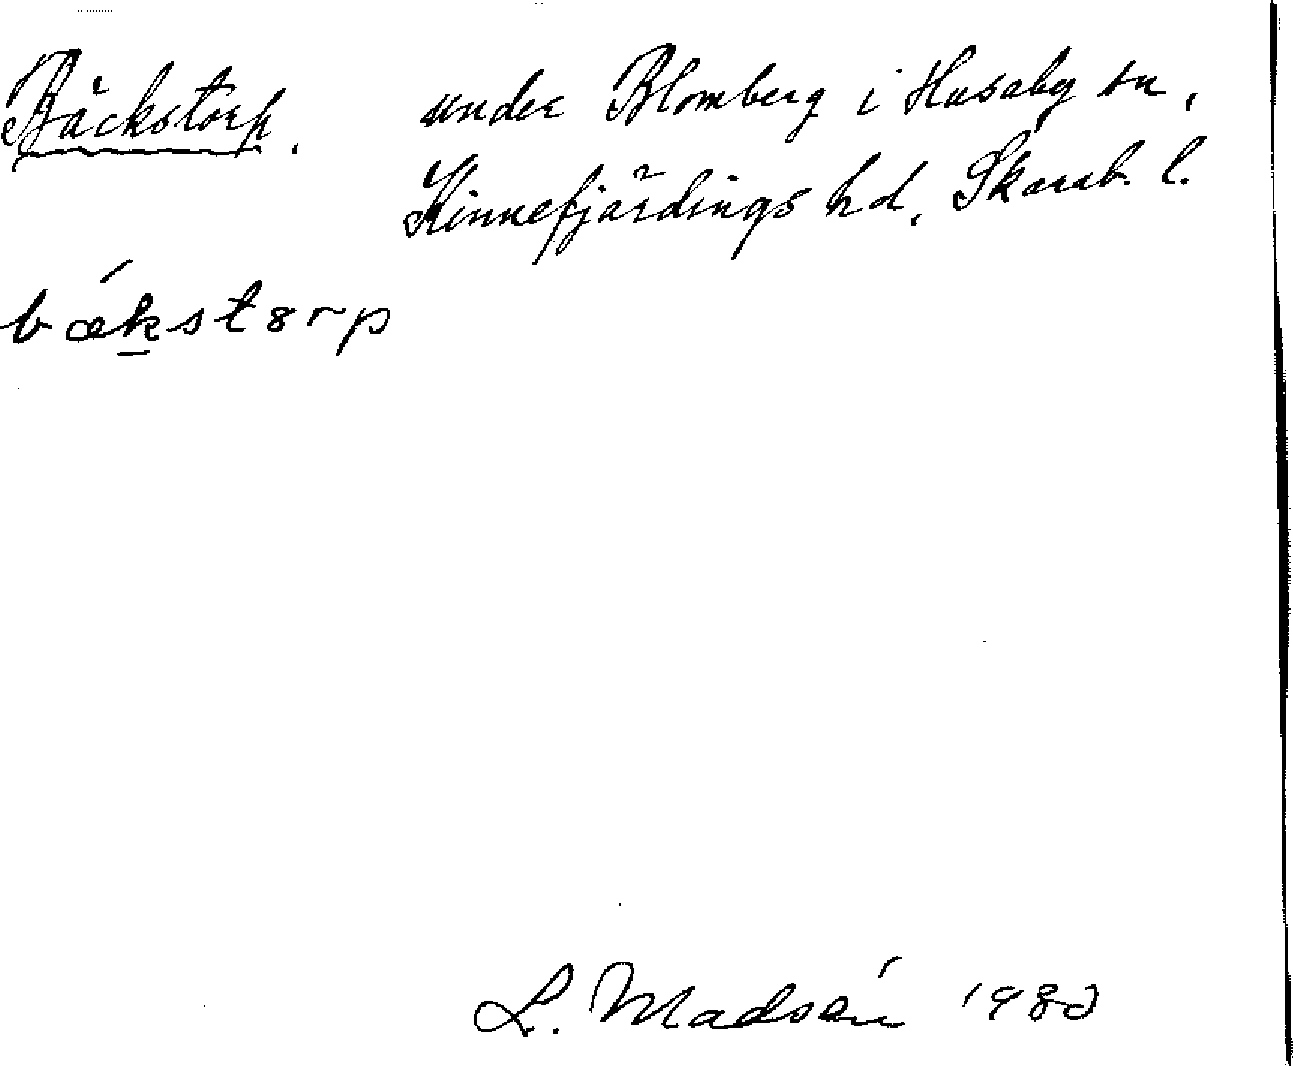 Bäckstorp. under Blomberg i Husaby sn,
Kinnefjärdings hd, Skarab. l.
bǽkstȣrp
L. Madsén 1980